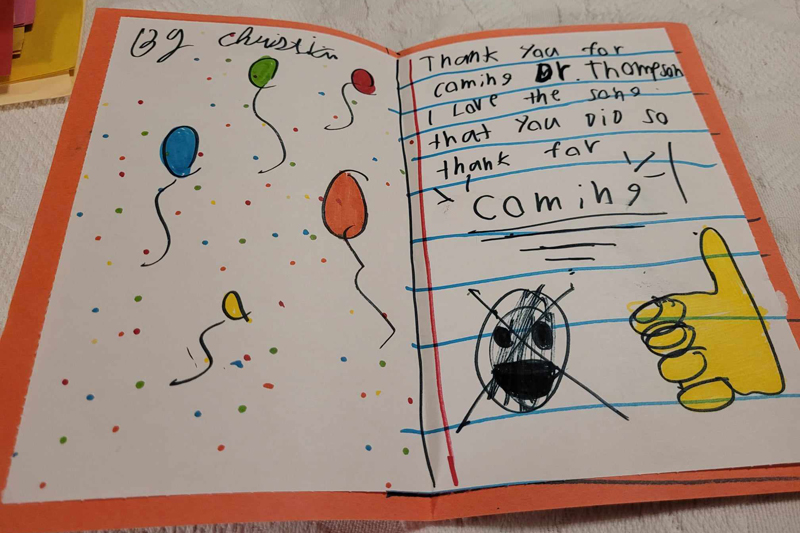 By Christin
Thank you for
coming Dr. Thompson
I Love the song
that you DiD so
thank for
coming